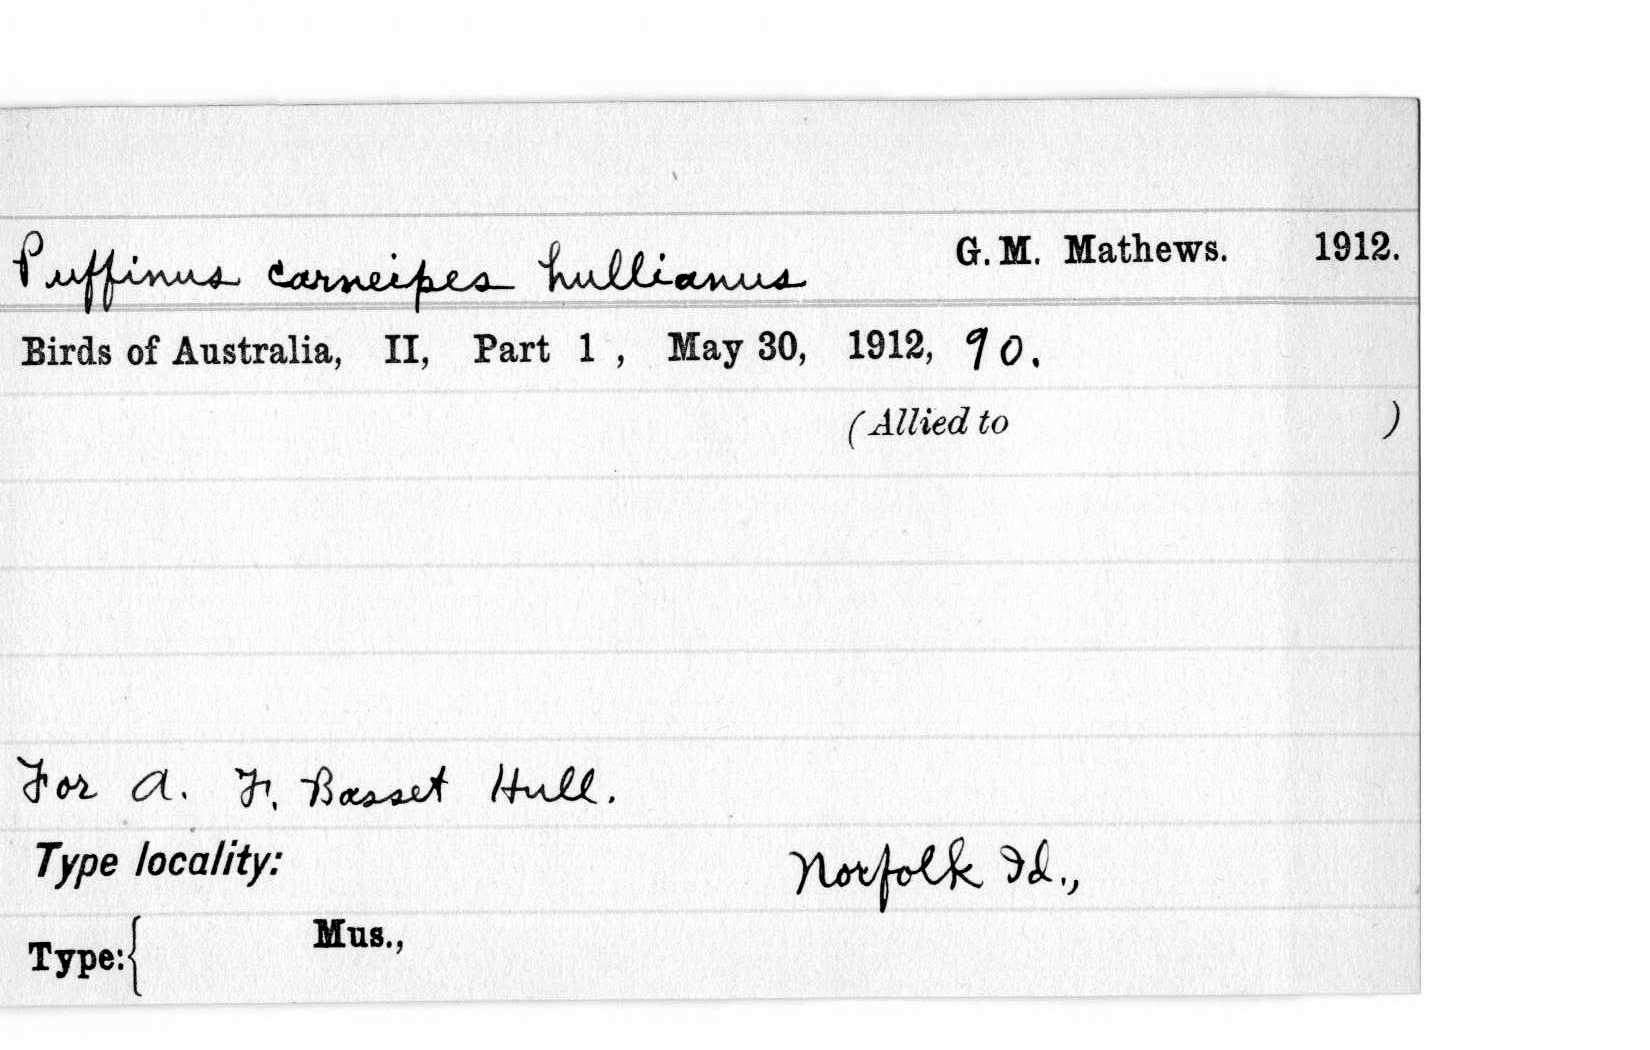 Puffinus carneipes hullianus G. M. Mathews. 1912.
Birds of Australia, II, Part 1 , May 30, 1912, 90.
(Allied to )
For A. F. Basset Hull.
Type locality: Norfolk Id.,
Type:{ Mus.,